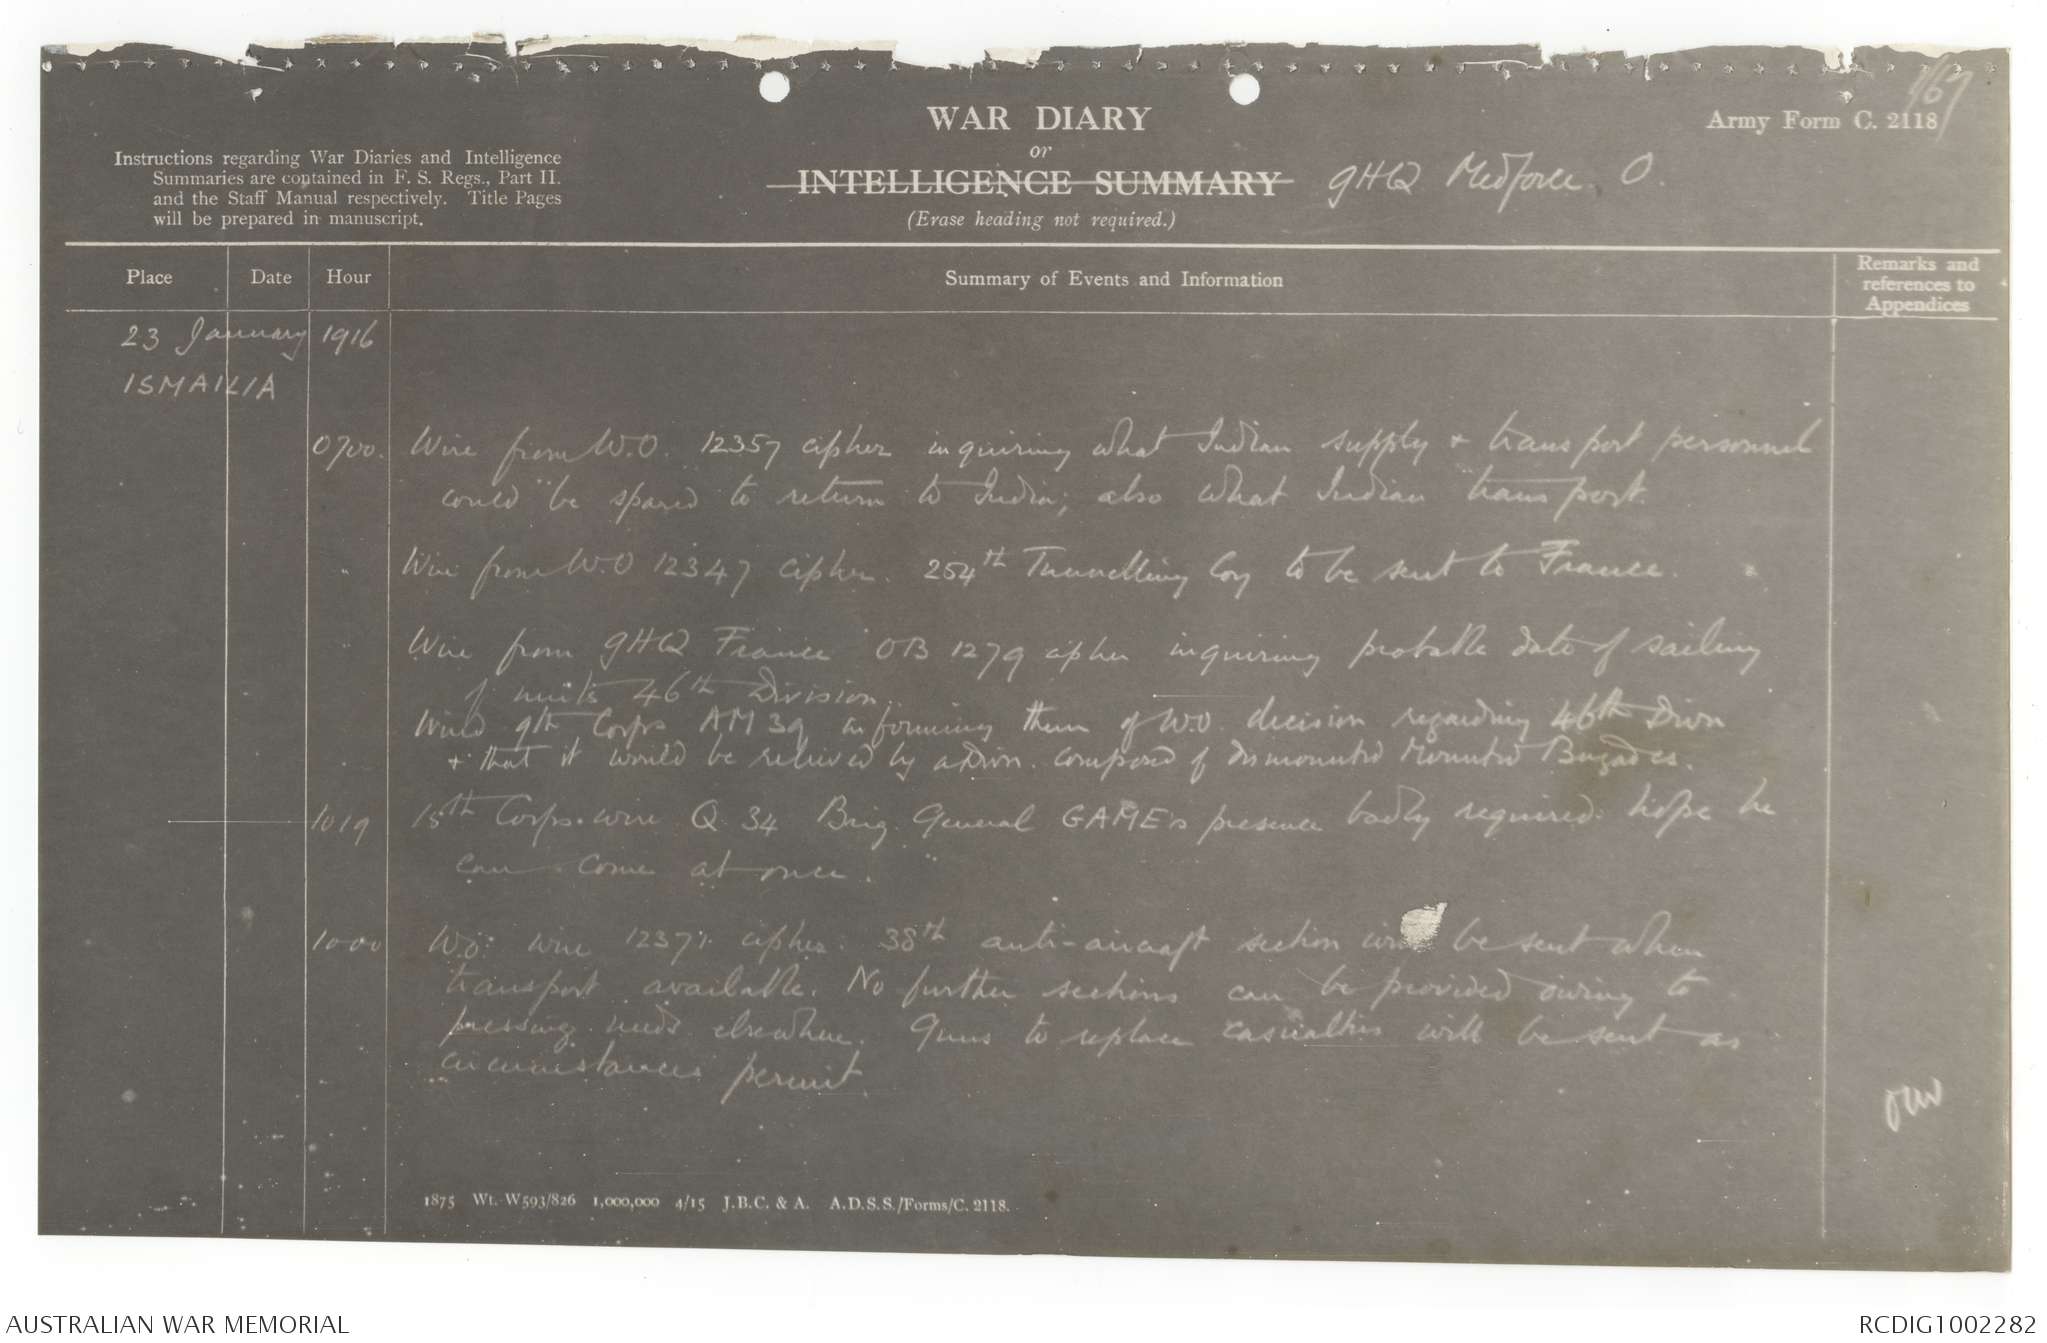 167
WAR DIARY
or
INTELLIGENCE SUMMARY
(Erase heading not required.)
Army Form C. 2118
GHQ Medforce O.
Instructions regarding War Diaries and Intelligence
Summaries are contained in F. S. Regs., Part II.
and the Staff Manual respectively. Title Pages
will be prepared in manuscript.
Place Date Hour Summary of Events and Information Remarks and references to Appendices
23 January 1916
ISMAILIA
0700. Wire from W.O. 12357 cipher inquiring what Indian supply + transport personnel
could be spared to return to India; also what Indian transport.
" Wire from W.O 12347 cipher. 254th Tunnelling Coy to be sent to France.
Wire from GHQ France OB 1279 cipher inquiring probable date of sailing
of units 46th Division.
Wired 9th Corps AM 39 informing them of W.O. decision regarding 46th Divn
+ that it would be relieved by a Divn. composed of dismounted Mounted Brigades.
1019 15th Corps wire Q 34 Brig. General GAME's presence badly required hope he
can come at once.
1000 W.O. wire 12371 cipher. 38th anti-aircraft section will be sent when
transport available. No further sections can be provided owing to
pressing needs elsewhere. Guns to replace casualties will be sent as
circumstances permit
1875 Wt. W593/826 1,000,000 4/15 J.B.C. & A. A.D.S.S./Forms/C. 2118.
AUSTRALIAN WAR MEMORIAL
RCDIG1002282